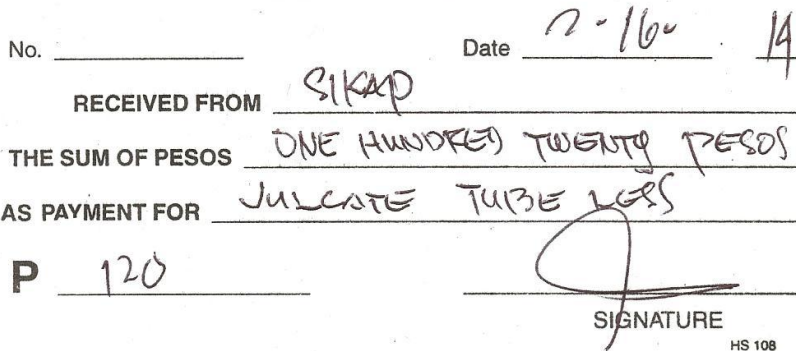 No. Date 2-16- 14
RECEIVED FROM SIKAP
THE SUM OF PESOS ONE HUNDRED TWENTY PESOS
AS PAYMENT FOR JULCATE TUBE LESS
P 120
SIGNATURE
HS 108